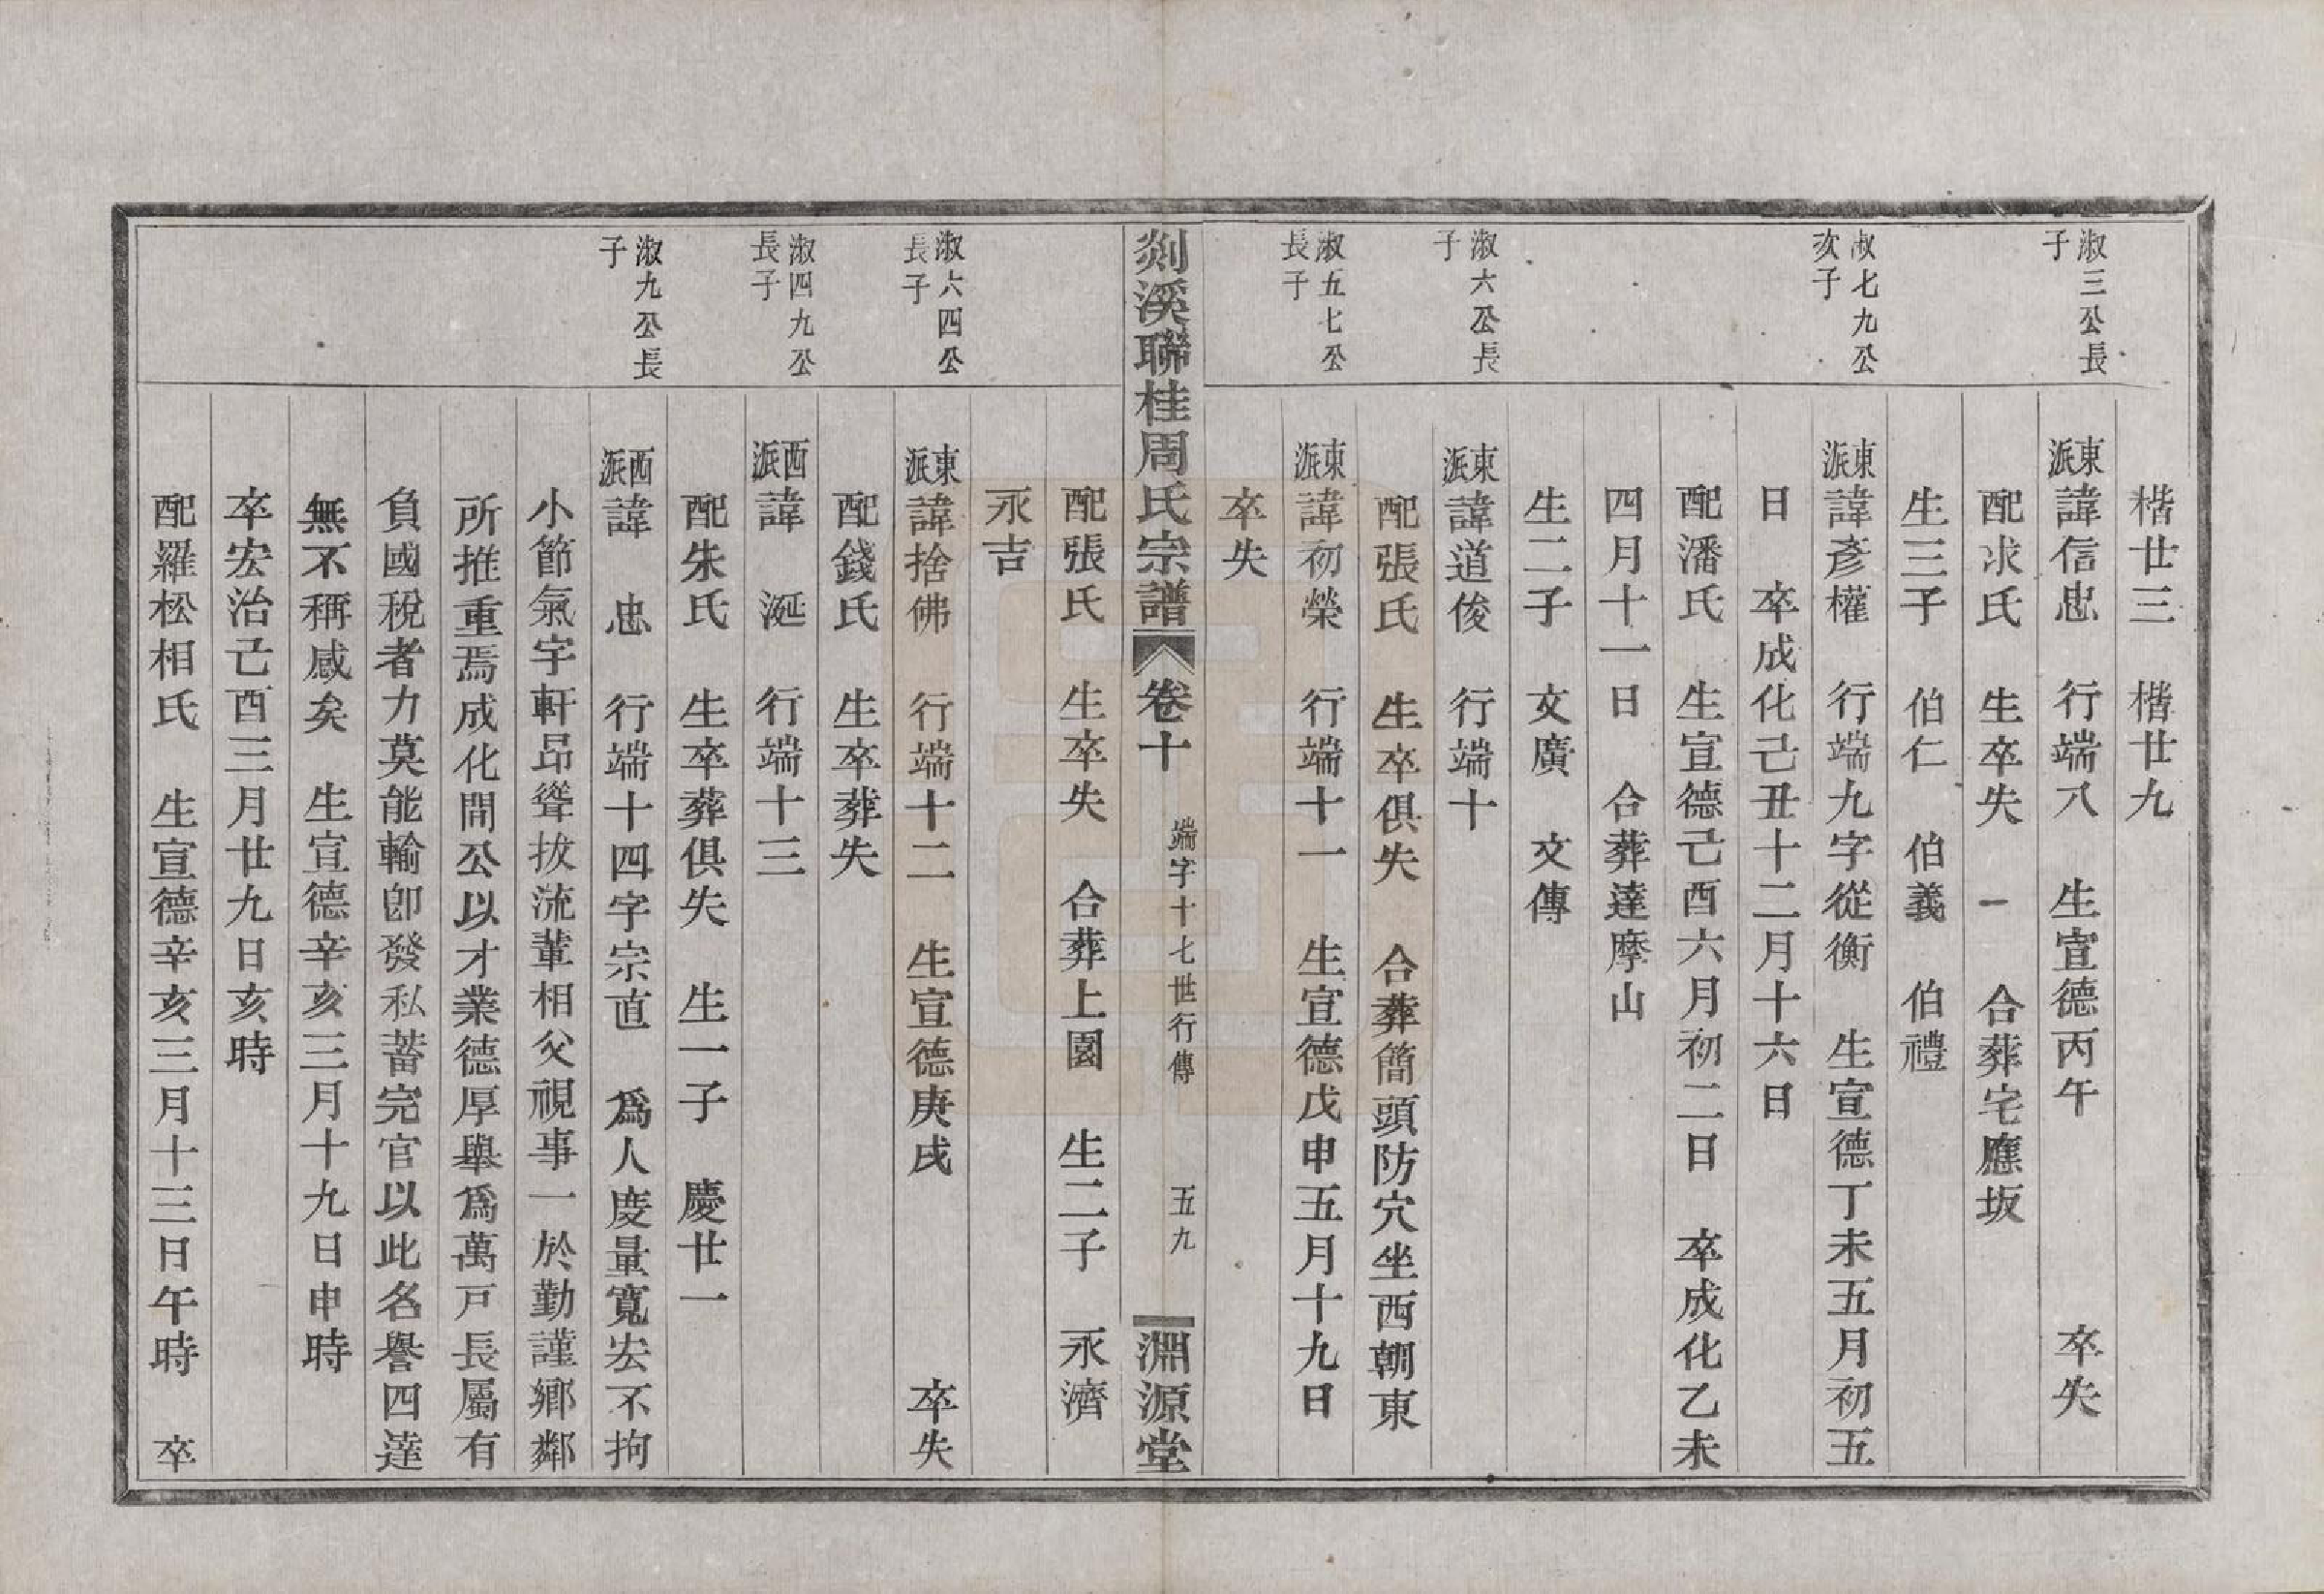 楷廿三　楷廿九
淑三公長子
東派諱信忠　行端八　生宣德丙午　卒失
配求氏　生卒失　一　合葬宅應坂
生三子　伯仁　伯義　伯禮
淑七九公次子
東派諱彥權　行端九字從衡　生宣德丁未五月初五
日　卒成化己丑十二月十六日
配潘氏　生宣德己酉六月初二日　卒成化乙未
四月十一日　合葬達摩山
生二子　文廣　文傳
淑六公長子
東派諱道俊　行端十
配張氏　生卒俱失　合葬簡頭防穴坐西朝東
淑五七公長子
東派諱初榮　行端十一　生宣德戊申五月十九日
卒失
剡溪聯桂周氏宗譜　卷十　端字十七世行傳　五九　淵源堂
配張氏　生卒失　合葬上園　生二子　永濟
永吉
淑六四公長子
東派諱捨佛　行端十二　生宣德庚戌　卒失
配錢氏　生卒葬失
淑四九公長子
西派諱　涎　行端十三
配朱氏　生卒葬俱失　生一子　慶廿一
淑九公長子
西派諱　忠　行端十四字宗直　爲人度量寬宏不拘
小節氣宇軒昂聳拔流輩相父視事一於勤謹鄉鄰
所推重焉成化間公以才業德厚舉爲萬戸長屬有
負國稅者力莫能輸卽發私蓄完官以此名譽四達
無不稱感矣　生宣德辛亥三月十九日申時
卒宏治己酉三月廿九日亥時
配羅松相氏　生宣德辛亥三月十三日午時　卒